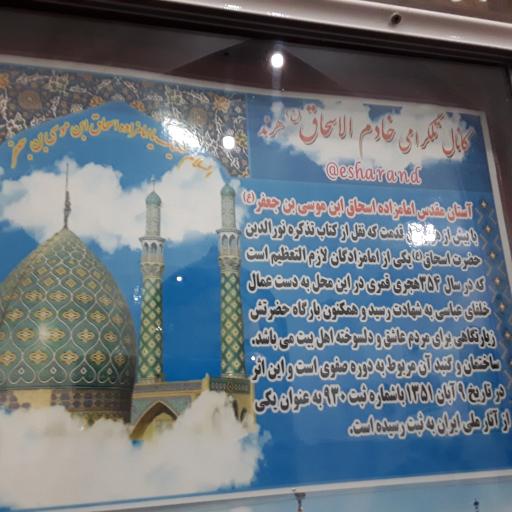 کانال تلگرامی خادم الاسحاق (ع) هرند
@esharand
امامزاده اسحاق ابن موسی بن جعفر
آستان مقدس امامزاده اسحاق ابن موسی بن جعفر (ع)
با بیش از قدمت که نقل از کتاب تذکره نورالدین
حضرت اسحاق (ع) یکی از امامزادگان لازم التعظیم است
که در سال ۲۵۴ هجری قمری در این محل به دست عمال
خلفای عباسی به شهادت رسید و همکنون بارگاه حضرتش
زیارتگاهی برای مردم عاشق و دلسوخته اهل بیت می باشد.
ساختمان و گنبد آن مربوط به دوره صفوی است و این اثر
در تاریخ ۹ آبان ۱۳۵۱ با شماره ثبت ۹۳۰ به عنوان یکی
از آثار ملی ایران به ثبت رسیده است.